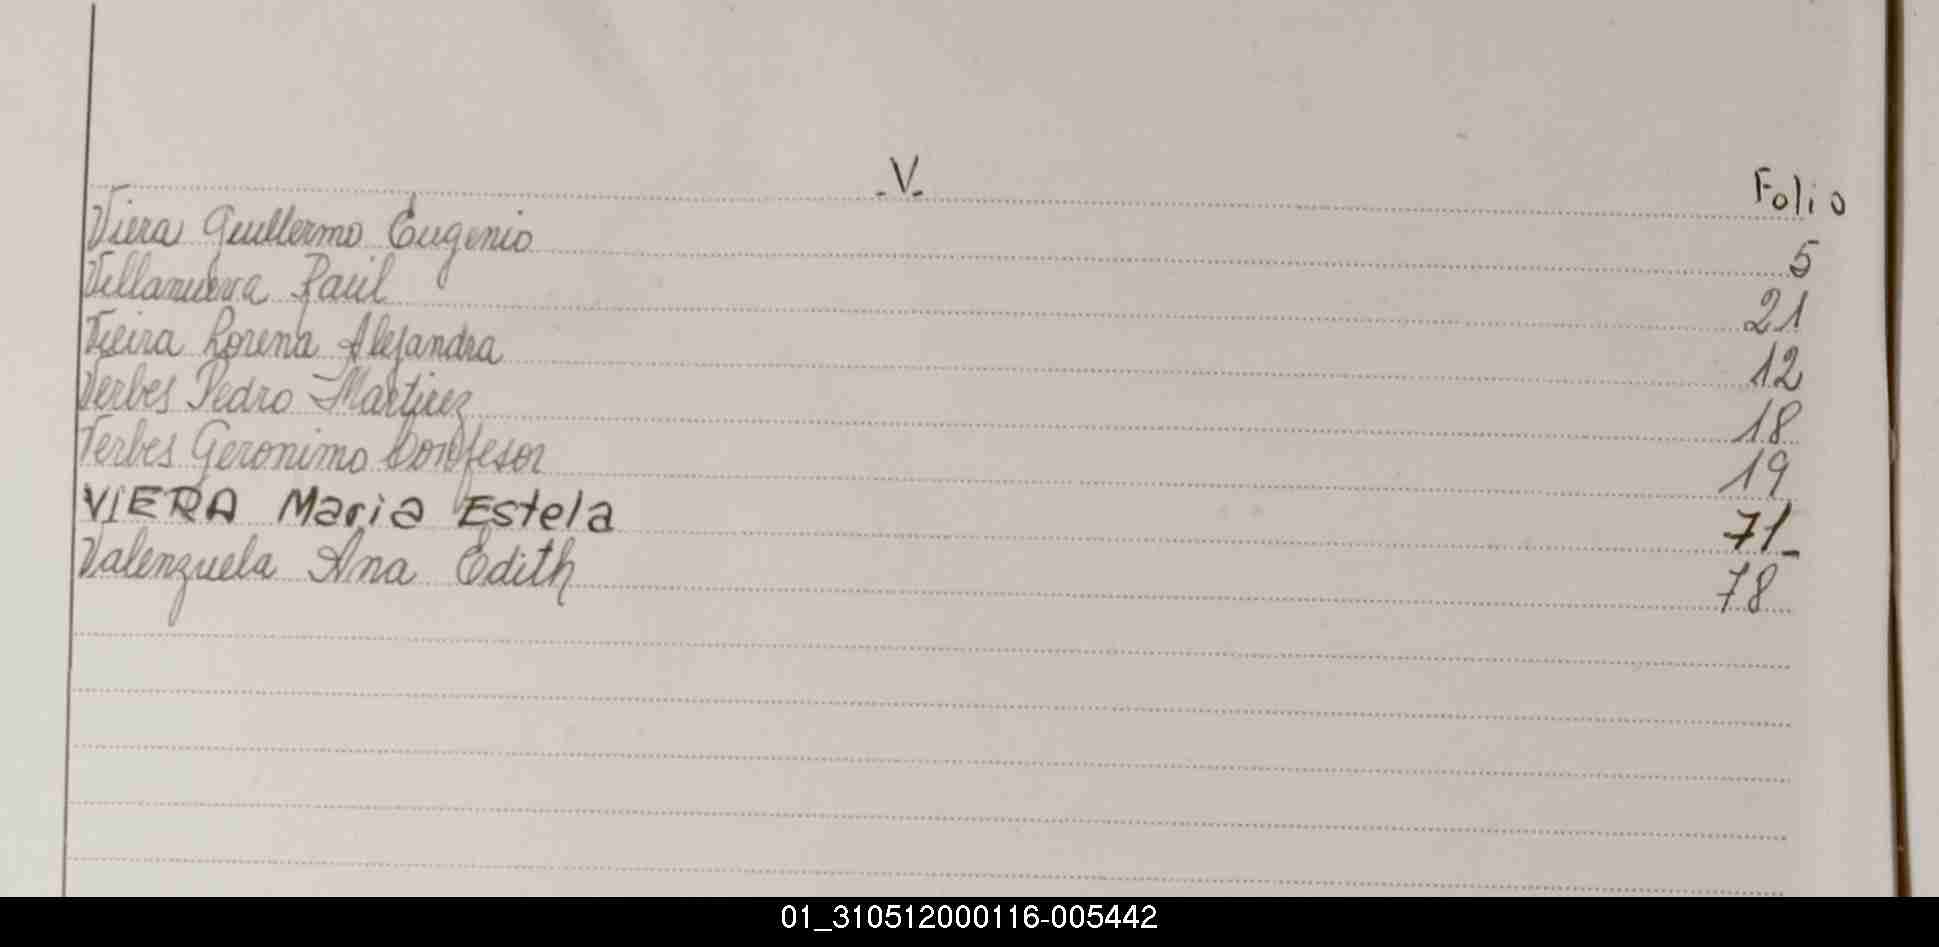 -V- Folio
Viera Guillermo Eugenio 5
Villanueva Raúl 21
Vieira Lorena Alejandra 12
Verbes Pedro Martirez 18
Verbes Geronimo Confesor 19
VIERA Maria Estela 71-
Valenzuela Ana Edith 78
01_310512000116-005442